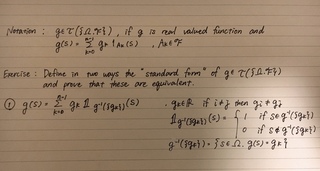 Notation : g∈τ({Ω,𝓕}), if g is real valued function and
g(s) = Σ_{k=0}^{n-1} g_k 1_{A_k}(s) , A_k∈𝓕
Exercise : Define in two ways the "standard form" of g∈τ({Ω,𝓕})
and prove that these are equivalent.
① g(s) = Σ_{k=0}^{n-1} g_k 𝟙_{g⁻¹({g_k})}(s) · g_k∈ℝ if i≠j then g_i≠g_j
𝟙_{g⁻¹({g_k})}(s) = { 1 if s∈g⁻¹({g_k})
0 if s∉g⁻¹({g_k})
g⁻¹({g_k}) = {s∈Ω, g(s)=g_k}